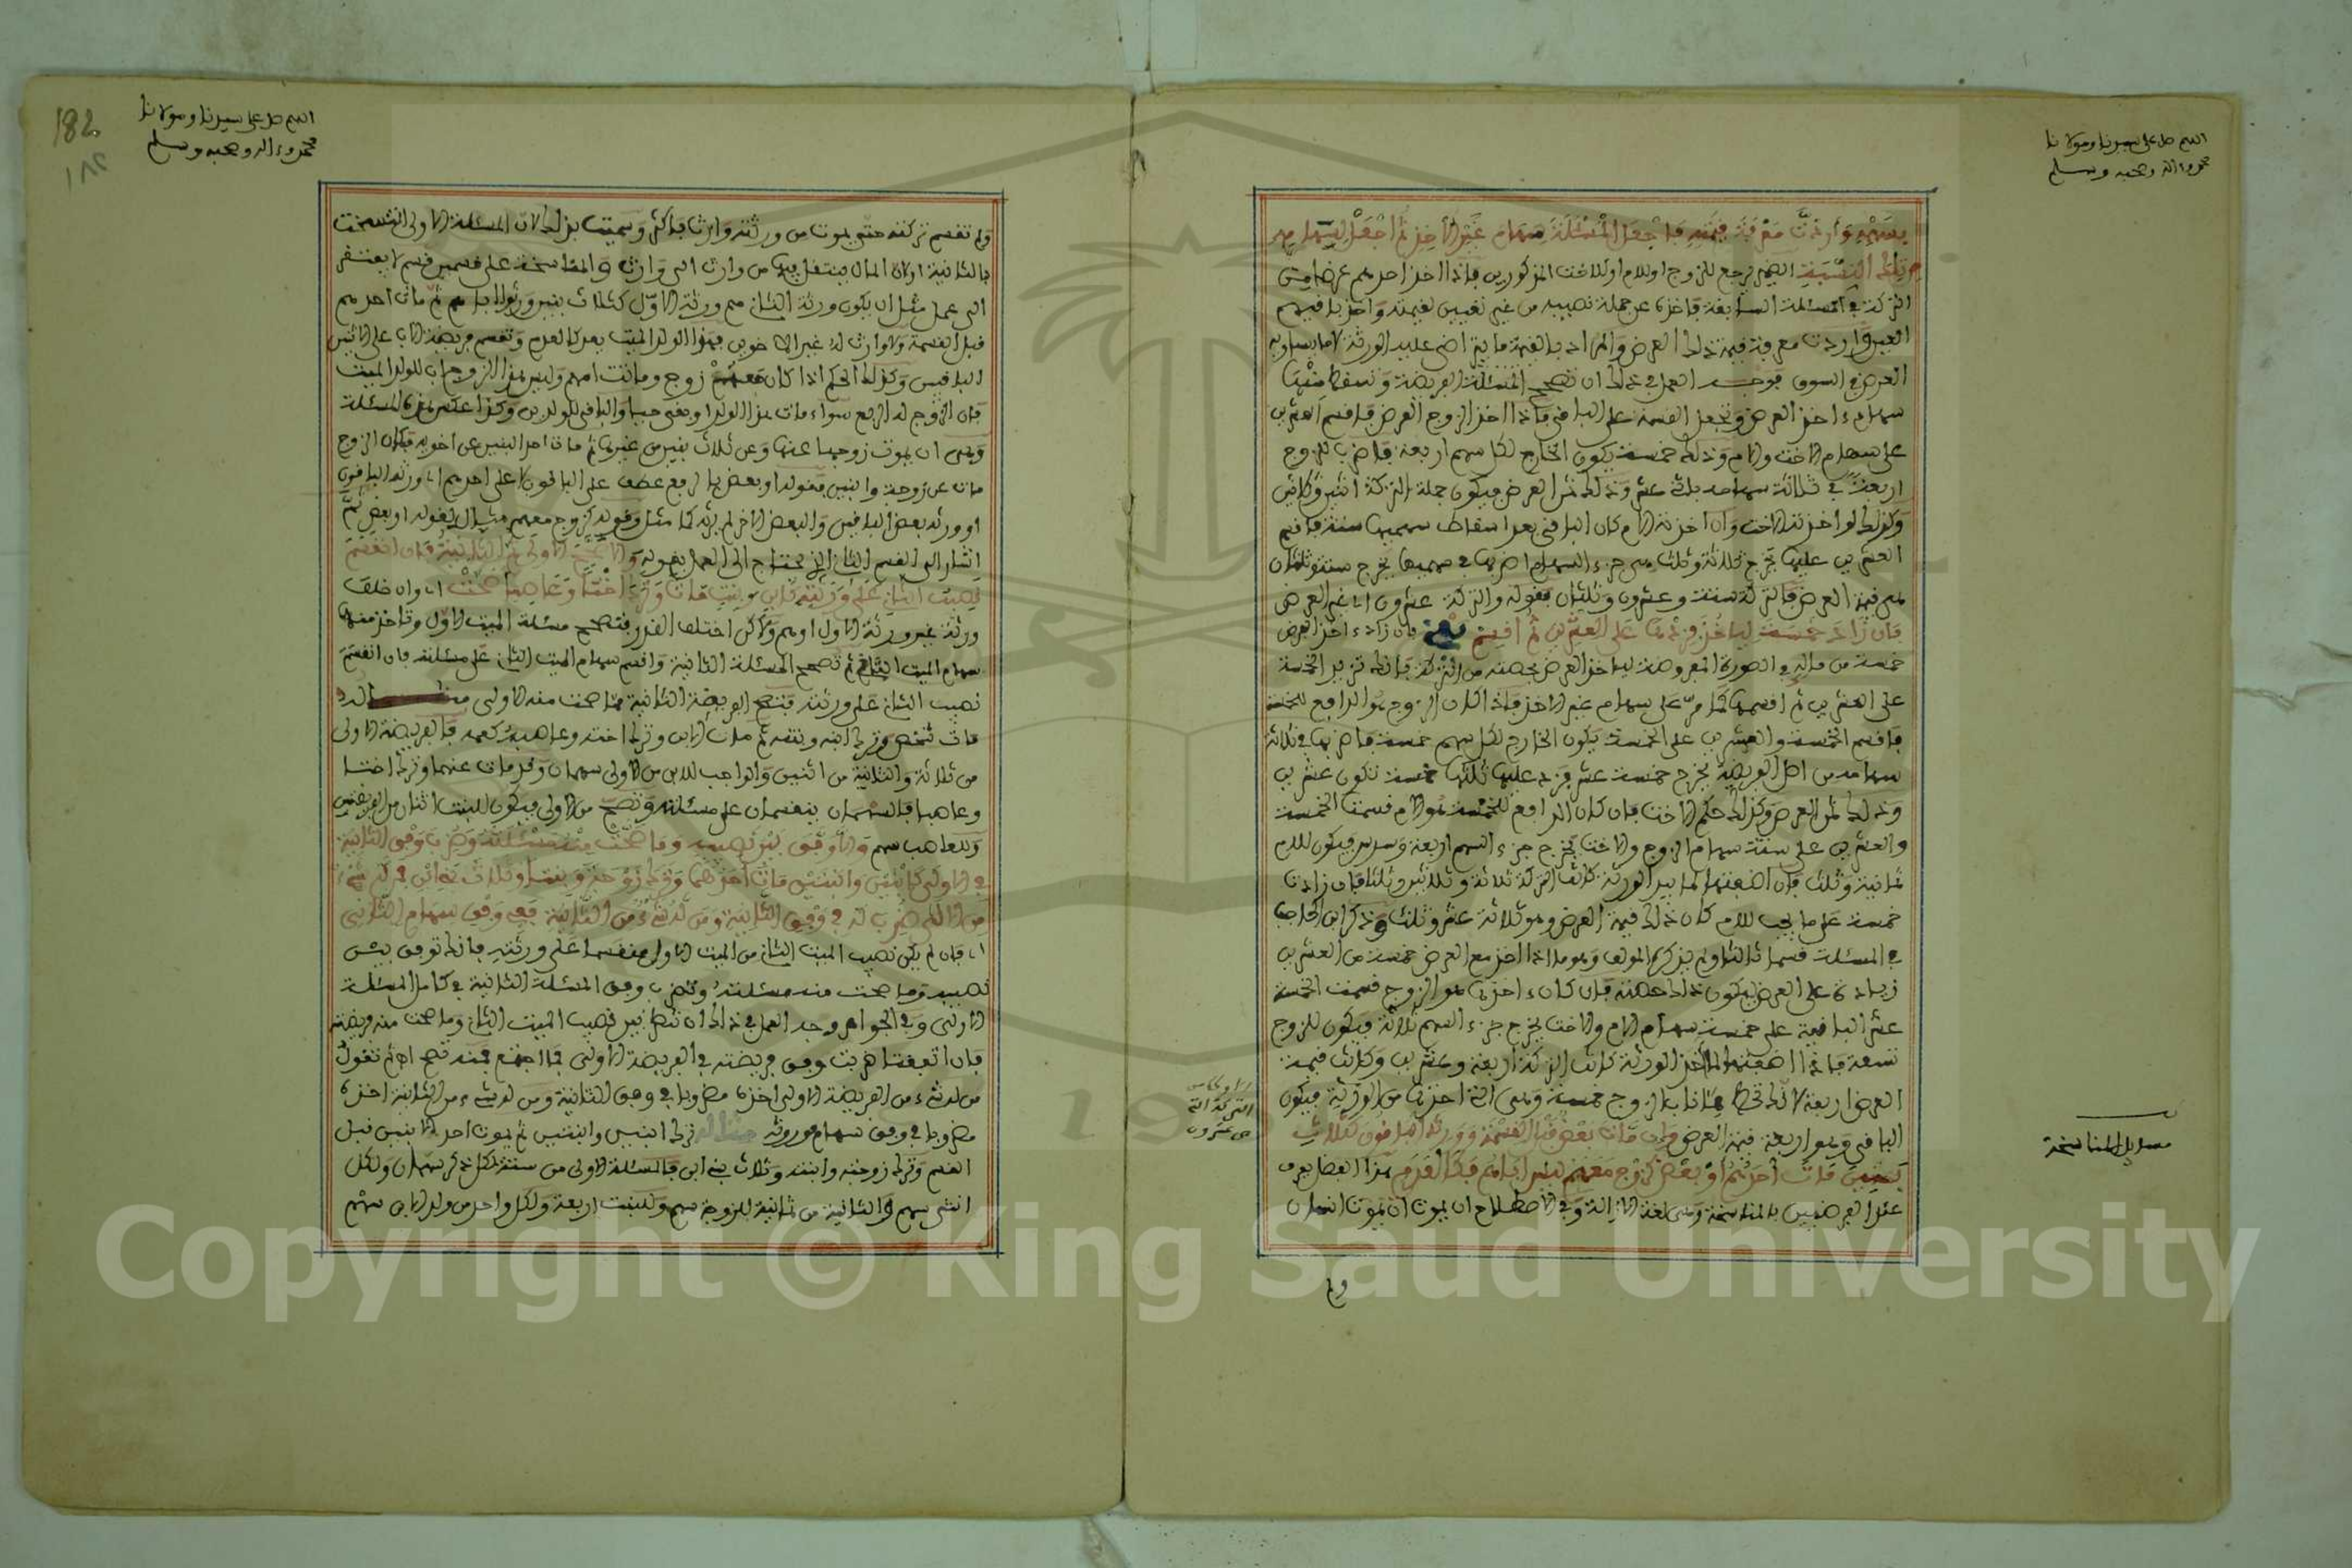 اللهم صل على سيدنا ومولانا
محمد وءاله وصحبه وسلم
بسهمه وأردت معرفة قيمته فاجعل المسئلة سهام غير الآخذ ثم اجعل لسهامه من
تلك النسبة الضمير يرجع للزوج او للام او للاخت المذكورين فاذا اخذ احدهم عرضا من
التركة في المسئلة السابقة فاخذه عن جملة نصيبه من غير تعيين لقيمته واخذ باقيهم
العين واردت معرفة قيمة ذلك العرض والمراد بالقيمة ما يتراضى عليه الورثة لا ما يساويه
العرض في السوق فوجه العمل في ذلك ان تصحح المسئلة الفريضة وتسقط منها
سهام ءاخذ العرض وتجعل القسمة على الباقي فاذا اخذ الزوج العرض فاقسم العشرين
على سهام الاخت والام وذلك خمسة يكون الخارج لكل سهم اربعة فاضرب للزوج
اربعة في ثلاثة سهامه باثنى عشر وذلك ثمن العرض فيكون جملة التركة اثنين وثلاثين
وكذلك لو اخذته الاخت وان اخذته الام كان الباقي بعد اسقاط سهميها ستة فاقسم
العشرين عليها يخرج ثلاثة وثلث هي جزء السهم اضربها في سهميها يخرج ستة وثلثان
هي قيمة العرض فالتركة ستة وعشرون وثلثان فقوله والتركة عشرون اي غير العرض
فان زاد خمسة ليأخذ فزدها على العشرين ثم اقسم فان زاد ءاخذ العرض
خمسة من ماله والصورة المفروضة لياخذ العرض بحصته من التركة فانك تزيد الخمسة
على العشرين ثم اقسمها كما مر على سهام غير الاخذ فاذا كان الزوج هو الدافع للخمسة
فاقسم الخمسة والعشرين على الخمسة يكون الخارج لكل سهم خمسة فاضربها في ثلاثة
سهامه من اصل الفريضة يخرج خمسة عشر فزد عليها خمسة تكون عشرين
وذلك ثمن العرض وكذلك حكم الاخت فان كان الدافع للخمسة هو الام قسمت الخمسة
والعشرين على ستة سهام الزوج والاخت يخرج جزء السهم اربعة وسدس فيكون للام
ثمانية وثلث فان اضفتها لما بيد الورثة كانت التركة ثلاثة وثلاثين وثلثا فان زادت
خمسة على ما يجب للام كان ذلك قيمة العرض وهو ثلاثة عشر وثلث وذكر ابن الحاجب
في المسئلة قسما ثالثا ولم يذكره المولف وهو ما اذا اخذ مع العرض خمسة من العشرين
زيادة على العرض ليكون ذلك حصته فان كان ءاخذها هو الزوج قسمت الخمسة
عشر الباقية على خمسة سهام الام والاخت يخرج جزء السهم ثلاثة ويكون للزوج
تسعة فاذا اضفتها لما اخذ الورثة كانت التركة اربعة وعشرين وكانت قيمة
العرض اربعة لانك تحط هنا مما بيد الزوج خمسة وهي التي اخذها من الورثة فيكون
الباقي وهو اربعة قيمة العرض وان مات بعض قبل القسمة وورثه الباقون كثلاثة
بنين مات احدهم او بعض كزوج معهم ليس اباهم فكالعدم هذا الفصل يعرف
عند الفرضيين بالمناسخة وهي لغة الازالة وفي الاصطلاح ان يموت انسان
ولم
او كانت
التركة التي
هي عشرون
مسايل المناسخة
182
١٨٢
اللهم صل على سيدنا ومولانا
محمد وءاله وصحبه وسلم
ولم تقسم تركته حتى يموت من ورثته وارث فاكثر وسميت بذلك لان المسئلة الاولى انتسخت
بالثانية او لان المال ينتقل فيها من وارث الى وارث والمناسخة على قسمين قسم لا يفتقر
الى عمل مثل ان يكون ورثة الثاني هم ورثة الاول كثلاث بنين ورثوا اباهم ثم مات احدهم
قبل القسمة ولا وارث له غير الاخوين فهذا الولد الميت يعد كالعدم وتقسم فريضة الاب على الاثنين
الباقيين وكذلك الحكم اذا كان معهم زوج وماتت امهم وليس هذا الزوج اب للولد الميت
فان الزوج له الربع سواء مات هذا الولد او بقي حيا والباقي للولدين وكذا عكس هذه المسئلة
وهي ان يموت زوجها عنها وعن ثلاث بنين من غيرها ثم مات احد البنين عن اخويه فكان الزوج
مات عن زوجة وابنين فقوله او بعض بالرفع عطف على الباقون لا على احدهم اي ورثه الباقون
او ورثه بعض الباقين والبعض الاخر لم يرثه كما مثل وقوله كزوج معهم مثال لقوله او بعض ثم
اشار الى القسم الثاني الذي يحتاج الى العمل بقوله والا صحح الاولى ثم الثانية فان انقسم
نصيب الثاني على ورثته كابن وبنت مات وترك اختا وعاصبا صحت اي وان خلف
ورثة غير ورثة الاول او هم ولاكن اختلف القدر فتصحح مسئلة الميت الاول وتاخذ منها
سهام الميت الثاني ثم تصحح المسئلة الثانية واقسم سهام الميت الثاني على مسئلته فان انقسم
نصيب الثاني على ورثته فتصح الفريضة الثانية مما صحت منه الاولى
مات شخص وترك ابنه وبنته ثم مات الابن وترك اخته وعاصبه كعمه فالفريضة الاولى
من ثلاثة والثانية من اثنين والواجب للابن من الاولى سهمان وقد مات عنهما وترك اختا
وعاصبا فالسهمان ينقسمان على مسئلته وتصح من الاولى فيكون للبنت اثنان من الفريضتين
وللعاصب سهم والا وفق بين نصيبه وما صحت منه مسئلته وضرب وفق الثانية
في الاولى كابنين وابنتين مات احدهما وترك زوجة وبنتا وثلاث بني ابن فمن له شيء
من الاولى ضرب له في وفق الثانية ومن له شيء من الثانية ففي وفق سهام الثاني
اي فان لم يكن نصيب الميت الثاني من الميت الاول منقسما على ورثته فانك توفق بين
نصيبه وما صحت منه مسئلته وتضرب وفق المسئلة الثانية في كامل المسئلة
الاولى وفي الجواهر وجه العمل في ذلك ان تنظر بين نصيب الميت الثاني وما صحت منه فريضته
فان اتفقت ضربت وفق فريضته في الفريضة الاولى فما اجتمع فمنه تصح اه ثم تقول
من له شيء من الفريضة الاولى اخذه مضروبا في وفق الثانية ومن له شيء من الثانية اخذه
مضروبا في وفق سهام موروثه ترك ابنين وابنتين ثم يموت احد الابنين قبل
القسم وترك زوجته وابنته وثلاث بني ابن فالمسئلة الاولى من ستة لكل ذكر سهمان ولكل
انثى سهم والثانية من ثمانية للزوجة سهم وللبنت اربعة ولكل واحد من ولد الابن سهم
Copyright © King Saud University